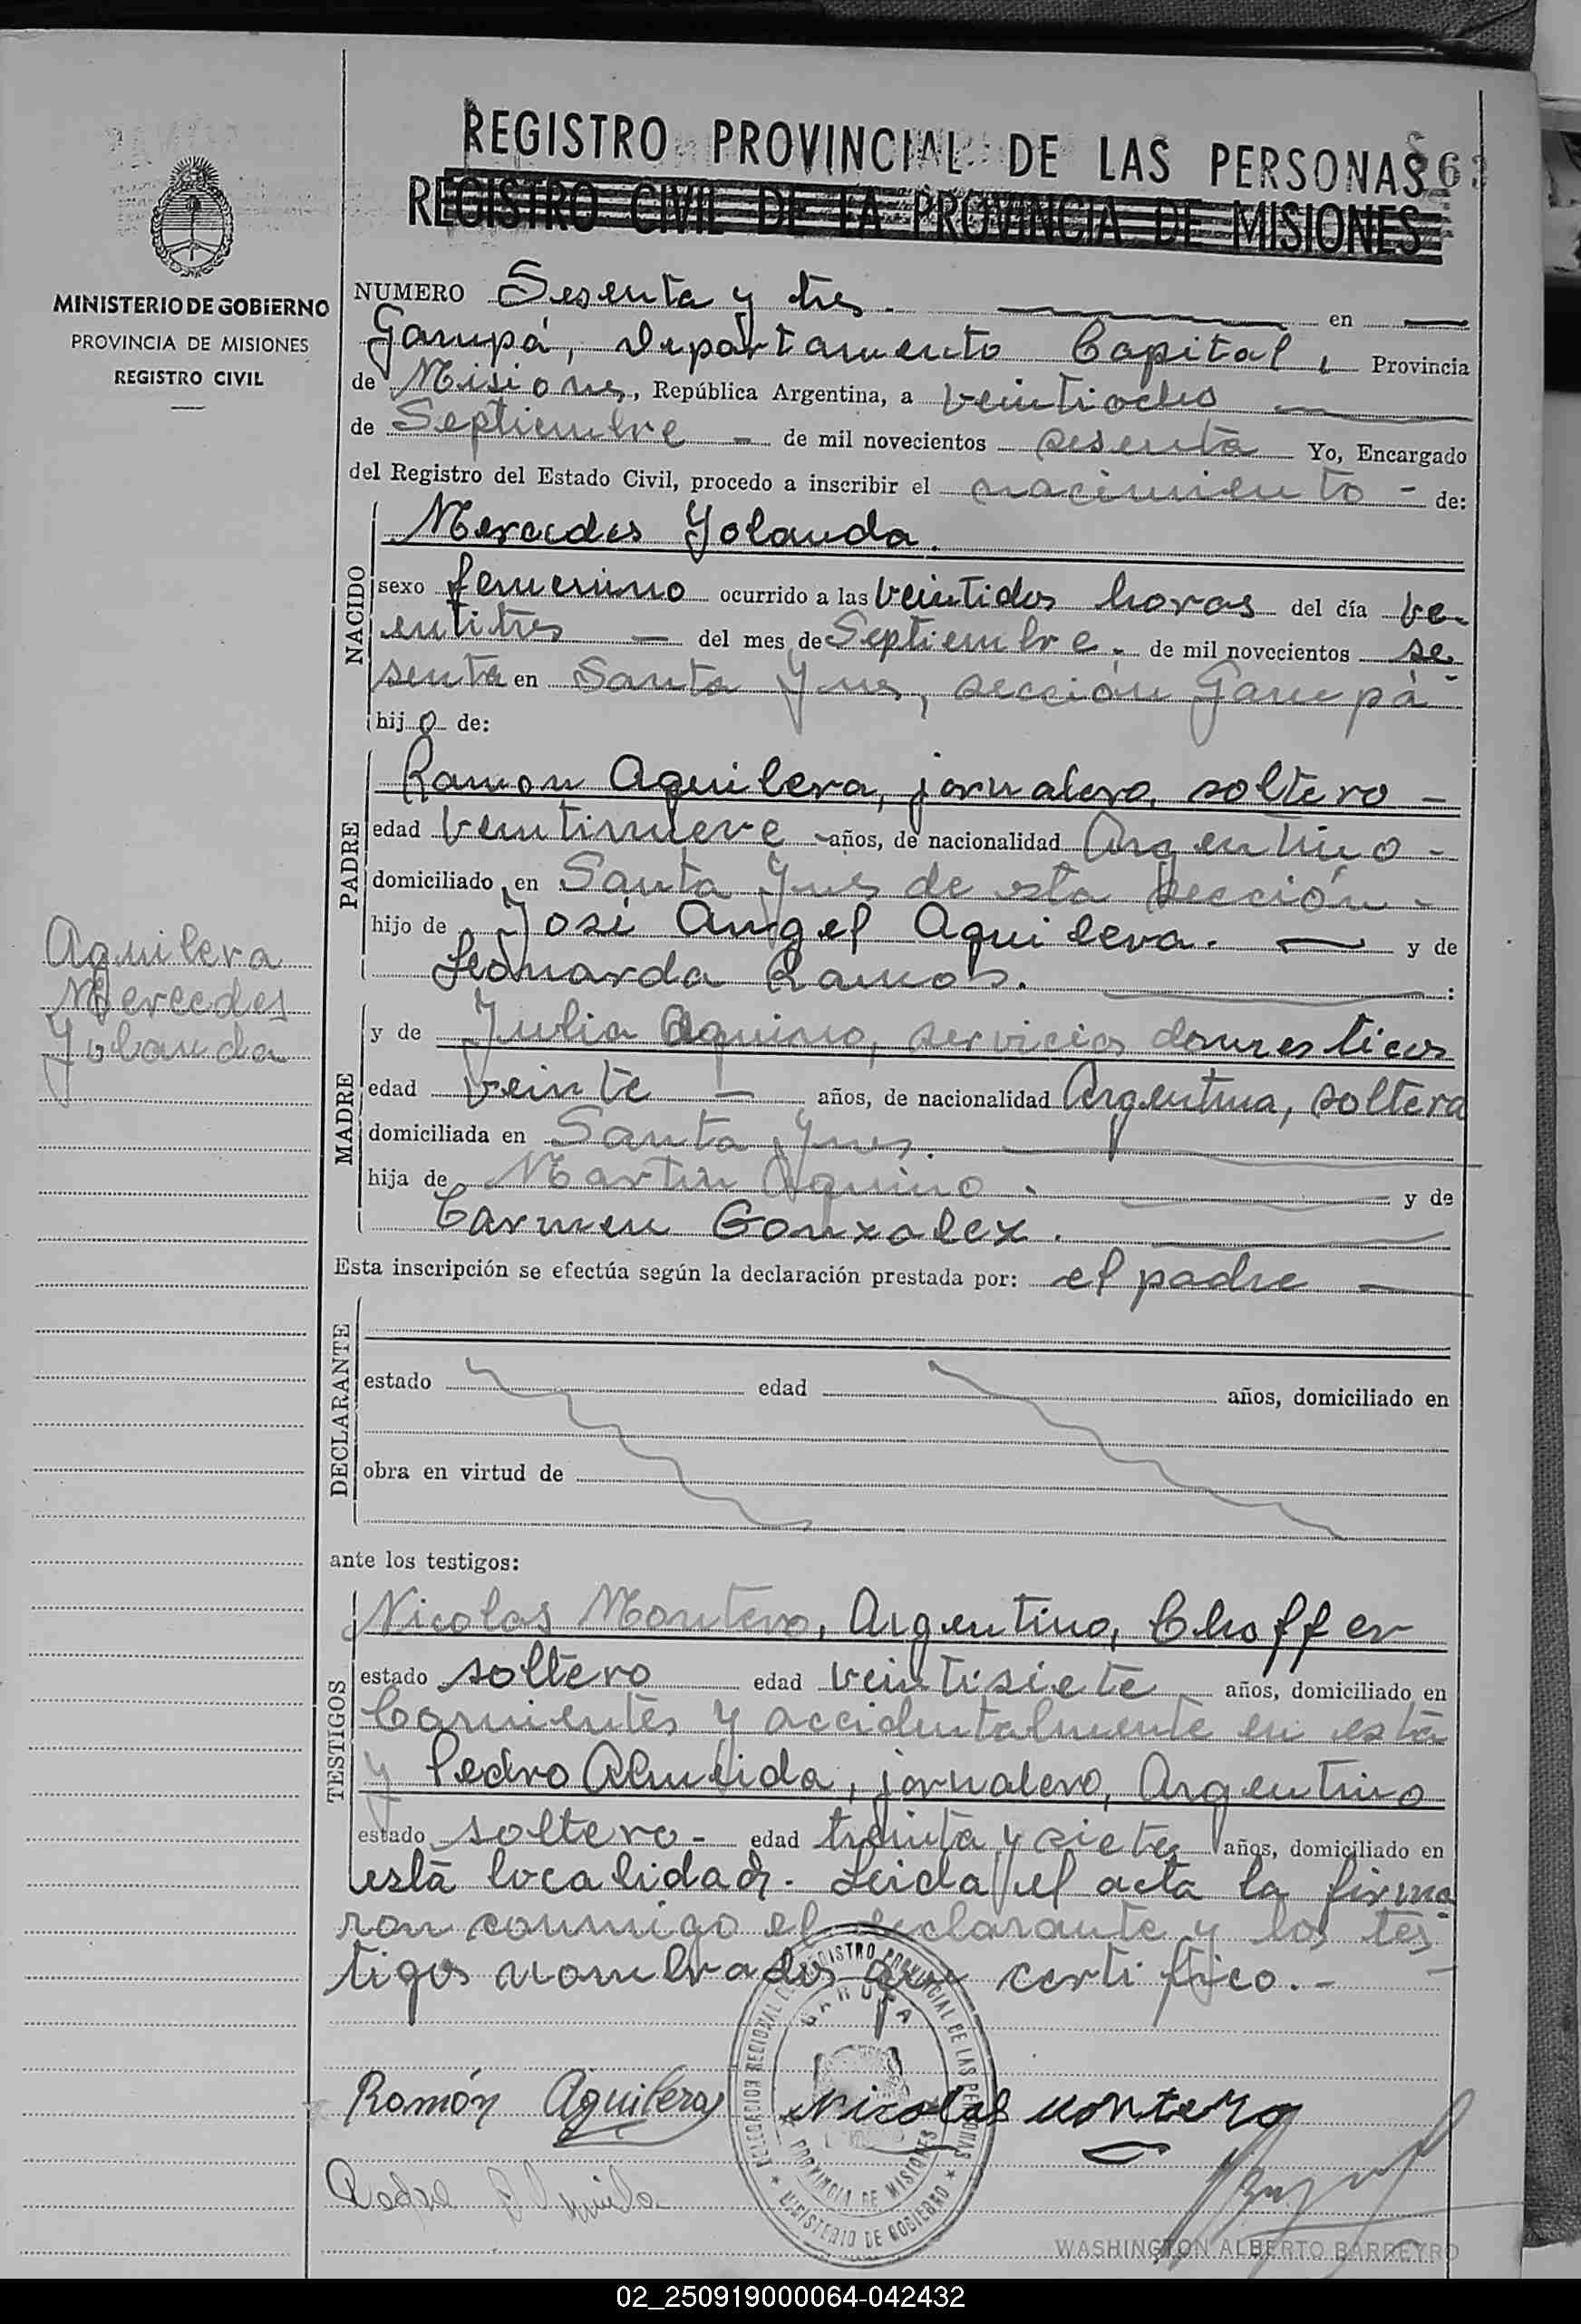 REGISTRO PROVINCIAL DE LAS PERSONAS
63
REGISTRO CIVIL DE LA PROVINCIA DE MISIONES
MINISTERIO DE GOBIERNO
PROVINCIA DE MISIONES
REGISTRO CIVIL
Aguilera
Mercedes
Yolanda
NUMERO Sesenta y tres. en
Garupá, Departamento Capital, Provincia
de Misiones, República Argentina, a veintiocho
de Septiembre - de mil novecientos sesenta Yo, Encargado
del Registro del Estado Civil, procedo a inscribir el nacimiento - de:
NACIDO
Mercedes Yolanda.
sexo femenino ocurrido a las veintidos horas del día ve-
intitres - del mes de Septiembre. de mil novecientos se-
senta en Santa Ynes, sección Garupá
hij o de:
PADRE
Ramon Aguilera, jornalero, soltero -
edad veintinueve - años, de nacionalidad Argentino -
domiciliado en Santa Ynes de esta sección -
hijo de José Angel Aguilera. y de
Leonarda Ramos. :
MADRE
y de Julia Aquino, servicios domesticos
edad veinte - años, de nacionalidad Argentina, soltera
domiciliada en Santa Ynes.
hija de Martin Aquino. y de
Carmen Gonzalez.
Esta inscripción se efectúa según la declaración prestada por: el padre
DECLARANTE
estado edad años, domiciliado en
obra en virtud de
ante los testigos:
TESTIGOS
Nicolas Montero, Argentino, Choffer
estado soltero edad veintisiete años, domiciliado en
Corrientes y accidentalmente en esta
y Pedro Almeida, jornalero, Argentino
estado soltero - edad treinta y siete años, domiciliado en
esta localidad. Leida el acta la firma-
ron conmigo el declarante y los tes-
tigos nombrados que certifico. -
DELEGACION REGIONAL DEL REGISTRO PROVINCIAL DE LAS PERSONAS
GARUPA
PROVINCIA DE MISIONES
MINISTERIO DE GOBIERNO
Ramón Aguilera Nicolas Montero
WASHINGTON ALBERTO BARREYRO
02_250919000064-042432